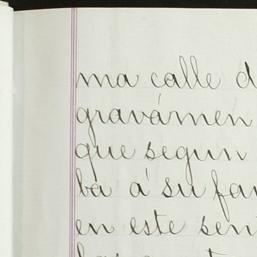 ma calle d
gravámen
que segun
ba á su fa
en este sen